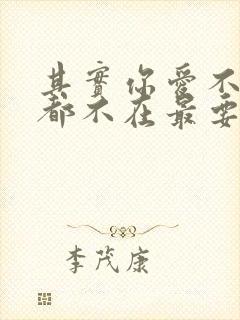 其實你愛不
都不在最要
李茂康